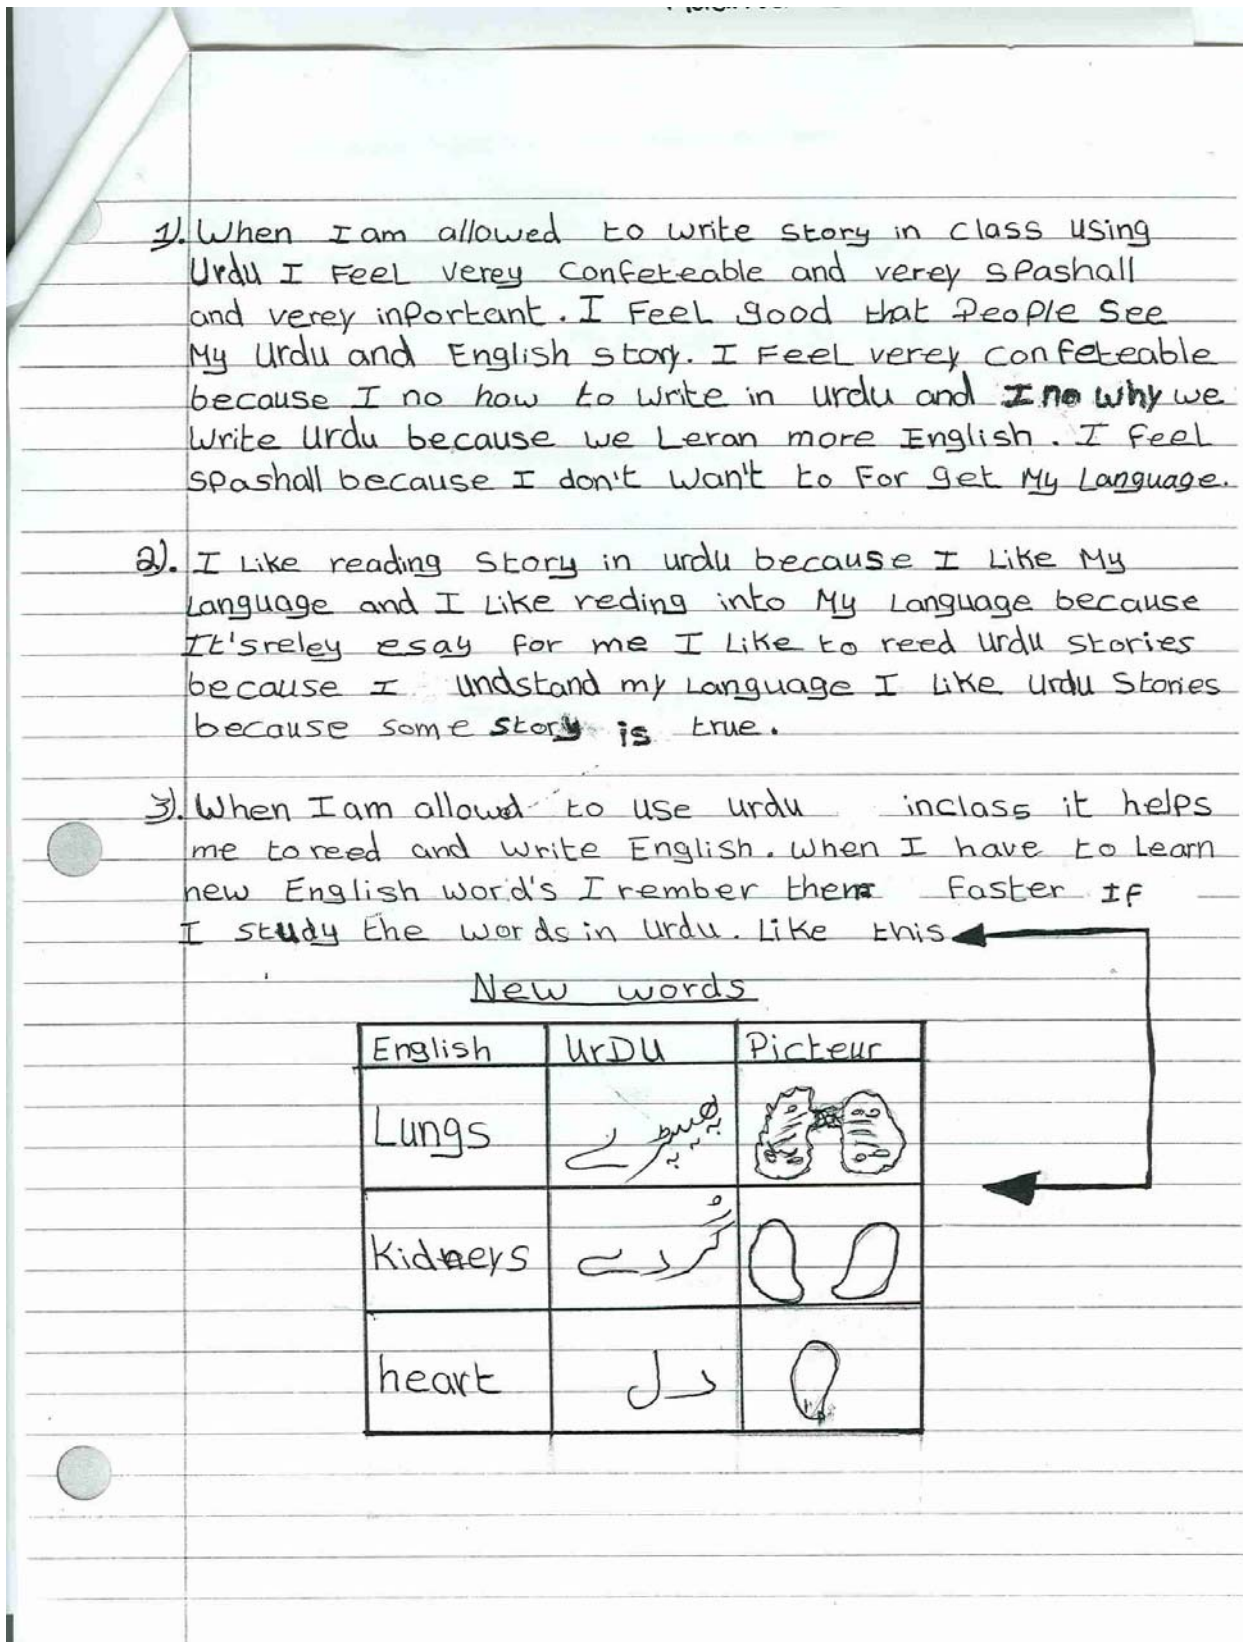 1). When I am allowed to write story in class using
Urdu I Feel verey Confeteable and verey sPashall
and verey inPortant. I Feel good that PeoPle See
My Urdu and English story. I Feel verey confeteable
because I no how to write in urdu and I no why we
write Urdu because we Leran more English. I feel
sPashall because I don't Wan't to For get My Language.
2). I Like reading Story in urdu because I Like My
Language and I Like reding into My Language because
It's reley esay for me I Like to reed urdu stories
because I undstand my Language I Like urdu Stories
because some story is true.
3). When I am allowd to use urdu inclass it helps
me to reed and write English. when I have to Learn
new English word's I rember them Faster If
I study the words in urdu. Like this
New words
English UrDU Picteur
Lungs پھیپڑے
Kidneys گُردے
heart دل